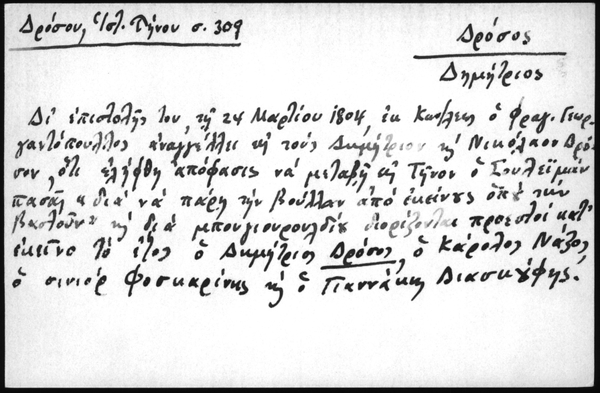 Δρόσου, Ἱστ. Τήνου σ. 309
Δρόσος
Δημήτριος
Δι' ἐπιστολῆς του, τῇ 24 Μαρτίου 1804, ἐκ Κων/λεως ὁ Φραγ. Γεωρ-
γαντόπουλος ἀναγγέλλει εἰς τοὺς Δημήτριον καὶ Νικόλαον Δρό-
σον, ὅτι ἐλήφθη ἀπόφασις νὰ μεταβῇ εἰς Τῆνον ὁ Σουλεϊμὰν
πασᾶς "διὰ νὰ πάρῃ τὴν βοῦλλαν ἀπὸ ἐκείνους ὁποῦ τὴν
βαστοῦν" καὶ διὰ μπουγιουρουλδίου διορίζονται προεστοὶ κατ'
ἐκεῖνο τὸ ἔτος ὁ Δημήτριος Δρόσος, ὁ Κάρολος Νάζος,
ὁ σινιὸρ Φοσκαρίνης καὶ ὁ Γιαννάκης Διασκούφης.